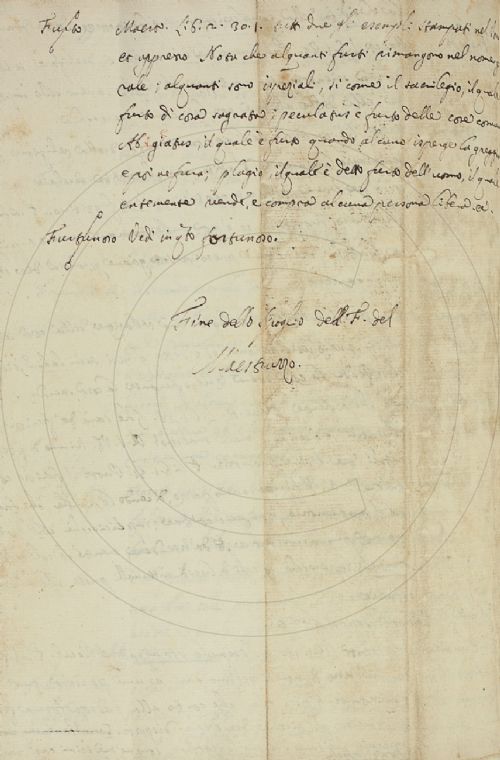 Furto Maestr. Lib. 2. 30. 1. tutti due gli esempli stampati nel
et appresso Nota che alquanti furti rimangono nel nome
rale; alquanti sono ispeziali, si come il sacrilegio, il quale
furto di cosa sagrata; peculatus è furto delle cose comu
Abigiatus, il quale è furto quando alcuno isperge la greggia
e poi ne fura; plagio, il quale è detto furto dell'uomo, il qual
entemente vende, e compra alcuna persona libera &c.
Furtunoso Vedi in qto fortunoso.
Fine dello Spoglio dell. F. del
Maestruzzo.